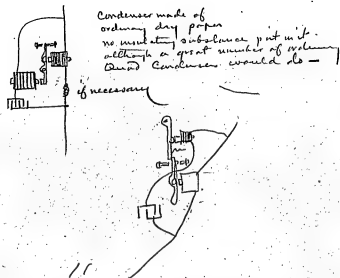 Condenser made of
ordinary dry paper
no insulating substance put in it.
although a great number of ordinary
Quad Condensers would do —
if necessary